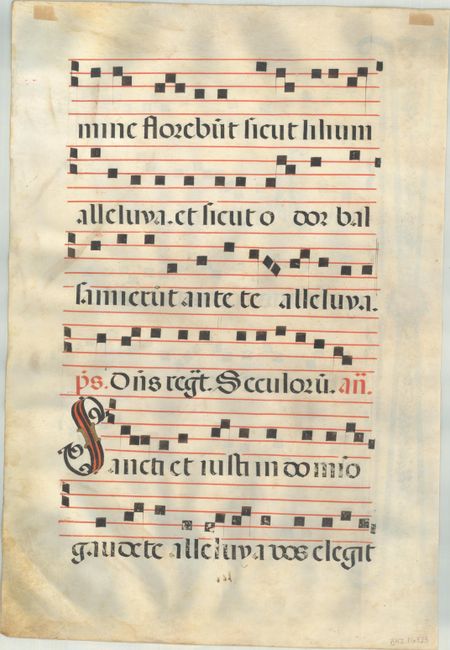 mine florebūt sicut lilium
alleluya. et sicut o dor bal
samu erūt ante te alleluya.
p̄s. Dn̄s regt̄. Seculorū. an̄.
Sancti et iusti in domīo
gaudete alleluya vos elegit